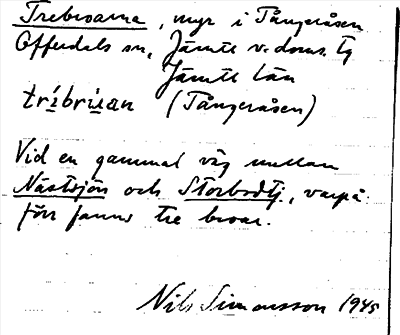 Trebroarna, myr i Tångeråsen
Offerdals sn, Jämtl v. doms. tg
Jämtl län
tríbrúan (Tångeråsen)
Vid en gammal väg mellan
Nästsjön och Storbodtj, varpå
förr fanns tre broar.
Nils Simonsson 1945